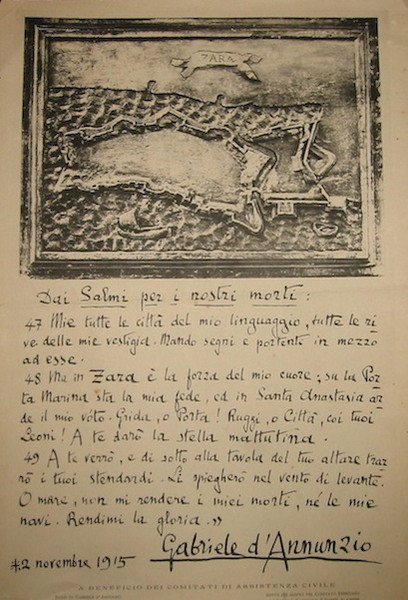 ZARA
Dai Salmi per i nostri morti:
47 Mie tutte le città del mio linguaggio, tutte le ri
ve delle mie vestigia. Mando segni e portenti in mezzo
ad esse.
48 Ma in Zara è la forza del mio cuore; su la Por
ta Marina sta la mia fede, ed in Santa Anastasia ar
de il mio vóto. Grida, o Porta! Ruggi, o Città, coi tuoi
Leoni! A te darò la stella mattutina.
49 A te verrò, e di sotto alla tavola del tuo altare trar
rò i tuoi stendardi. Li spiegherò nel vento di levante.
O mare, non mi rendere i miei morti, né le mie
navi. Rendimi la gloria. »
Gabriele d'Annunzio
*2 novembre 1915
A BENEFICIO DEI COMITATI DI ASSISTENZA CIVILE